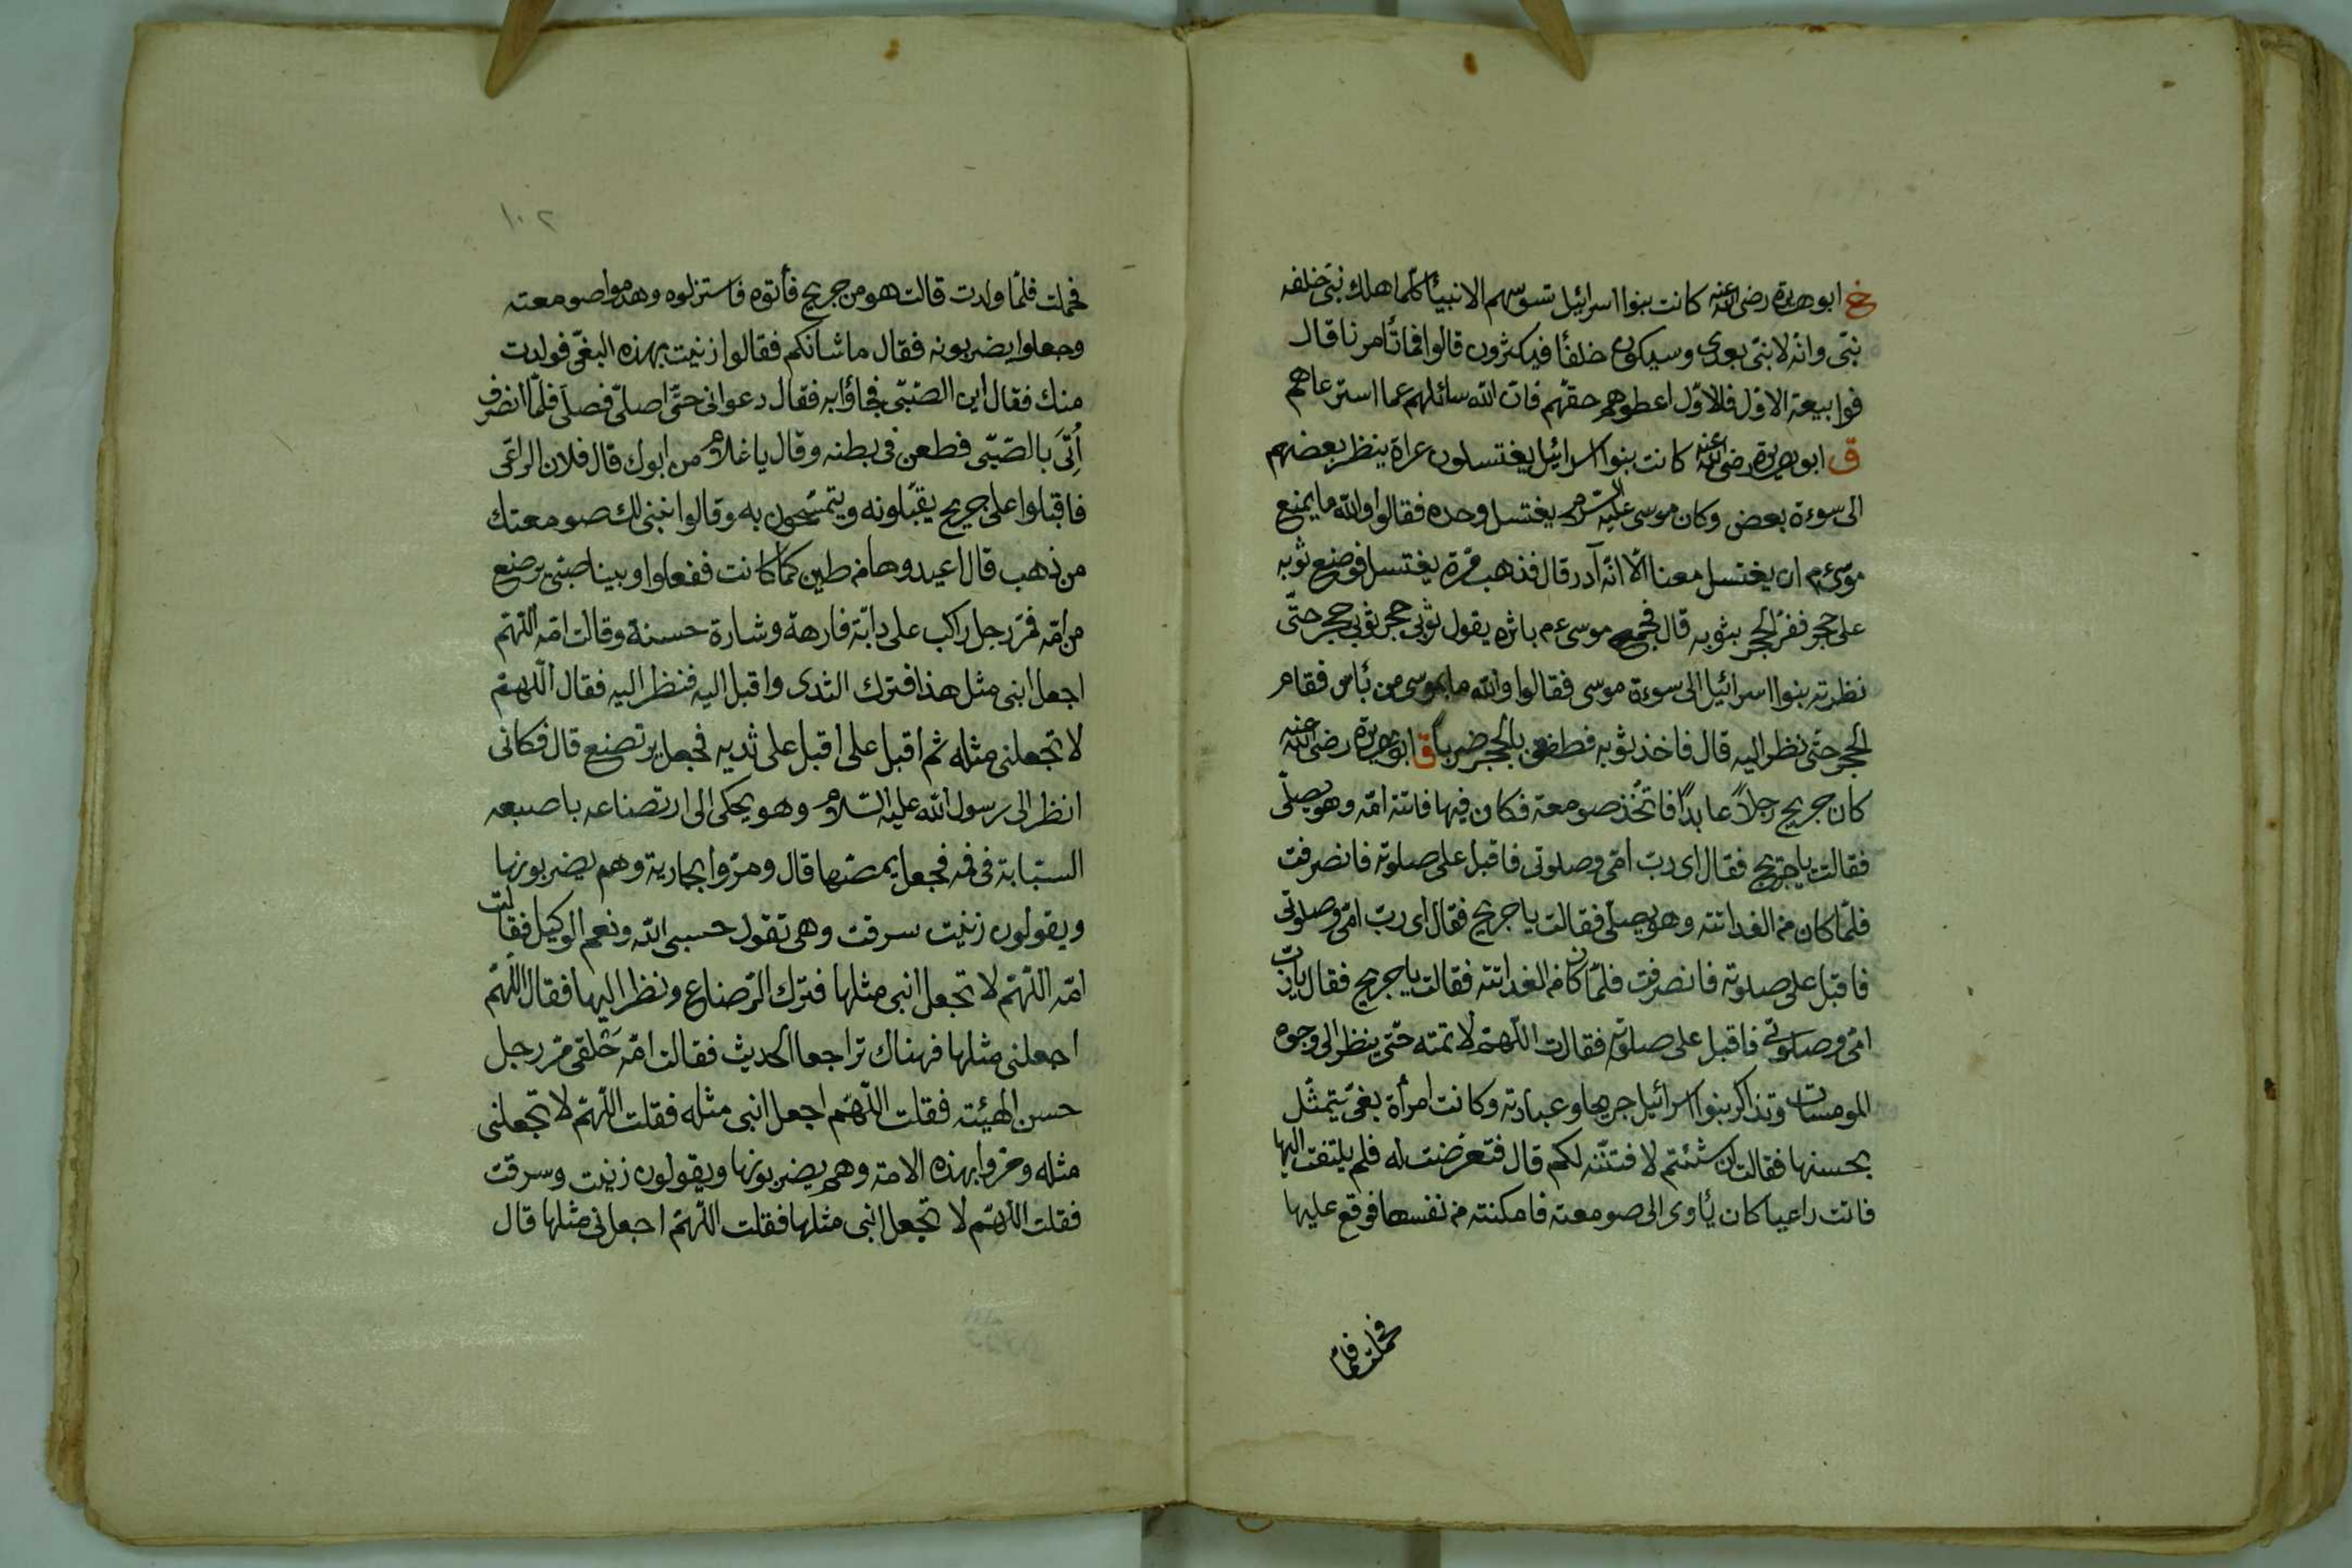 خ ابو هريرة رضى الله عنه كانت بنوا اسرائيل تسوسهم الانبيأ كلما هلك نبى خلفه
نبى وانه لا نبى بعدى وسيكون خلفأ فيكثرون قالوا فما تأمرنا قال
فوا بيعة الاول فالاول اعطوهم حقهم فان الله سائلهم عما استرعاهم
ق ابو هريرة رضى الله عنه كانت بنوا اسرائيل يغتسلون عراة ينظر بعضهم
الى سوءة بعض وكان موسى عليه السلام يغتسل وحده فقالوا والله ما يمنع
موسى ءم ان يغتسل معنا الا انه آدر قال فذهب مرة يغتسل فوضع ثوبه
على حجر ففر الحجر بثوبه قال فجمح موسى ءم باثره يقول ثوبى حجر ثوبى حجر حتى
نظرته بنوا اسرائيل الى سوءة موسى فقالوا والله ما بموسى من بأس فقام
الحجر حتى نظر اليه قال فاخذ ثوبه فطفق بالحجر ضربا ق ابو هريرة رضى الله عنه
كان جريج رجلا عابدا فاتخذ صومعة فكان فيها فاتته امه وهو يصلى
فقالت يا جريج فقال اى رب امى وصلوتى فاقبل على صلوته فانصرفت
فلما كان من الغد اتته وهو يصلى فقالت يا جريج فقال اى رب امى وصلوتى
فاقبل على صلوته فانصرفت فلما كان من الغد اتته فقالت يا جريج فقال يا رب
امى وصلوتى فاقبل على صلوته فقالت اللهم لا تمته حتى ينظر الى وجوه
المومسات وتذاكر بنوا اسرائيل جريجا وعبادته وكانت امرأة بغى يتمثل
بحسنها فقالت ان شئتم لافتننه لكم قال فتعرضت له فلم يلتفت اليها
فاتت راعيا كان يأوى الى صومعته فامكنته من نفسها فوقع عليها
فحملت فلما
١٠٢
فحملت فلما ولدت قالت هو من جريج فأتوه فاستنزلوه وهدموا صومعته
وجعلوا يضربونه فقال ما شانكم فقالوا زنيت بهذه البغى فولدت
منك فقال اين الصبى فجاؤا به فقال دعوانى حتى اصلى فصلى فلما انصرف
أتى بالصبى فطعن فى بطنه وقال يا غلام من ابوك قال فلان الراعى
فاقبلوا على جريج يقبلونه ويتمسحون به وقالوا نبنى لك صومعتك
من ذهب قال اعيدوها من طين كما كانت ففعلوا وبينا صبى يرضع
من امه فمر رجل راكب على دابة فارهة وشارة حسنة وقالت امه اللهم
اجعل ابنى مثل هذا فترك الثدى واقبل اليه فنظر اليه فقال اللهم
لا تجعلنى مثله ثم اقبل على اقبل على ثديه فجعل يرتضع قال فكانى
انظر الى رسول الله عليه السلام وهو يحكى الى ارتضاعه باصبعه
السبابة فى فمه فجعل يمصها قال ومروا بجارية وهم يضربونها
ويقولون زنيت سرقت وهى تقول حسبى الله ونعم الوكيل فقالت
امه اللهم لا تجعل ابنى مثلها فترك الرضاع ونظر اليها فقال اللهم
اجعلنى مثلها فهناك تراجعا الحديث فقالت امه حلقى مر رجل
حسن الهيئته فقلت اللهم اجعل ابنى مثله فقلت اللهم لا تجعلنى
مثله ومروا بهذه الامة وهم يضربونها ويقولون زنيت وسرقت
فقلت اللهم لا تجعل ابنى مثلها فقلت اللهم اجعلنى مثلها قال